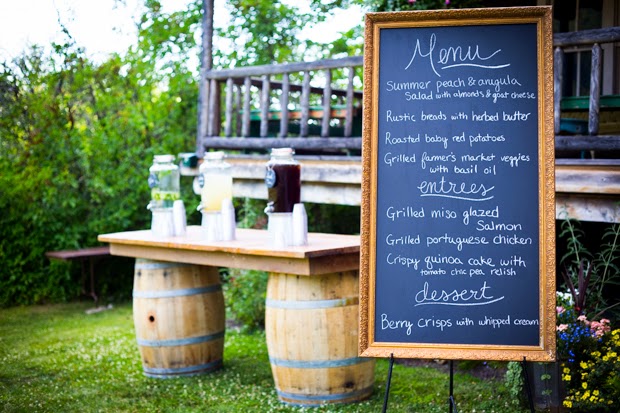 Menu
Summer peach & arugula
Salad with almonds & goat cheese
Rustic breads with herbed butter
Roasted baby red potatoes
Grilled farmer's market veggies
with basil oil
entrees
Grilled miso glazed
Salmon
Grilled portuguese chicken
Crispy quinoa cake with
tomato chic pea relish
dessert
Berry Crisps with whipped cream